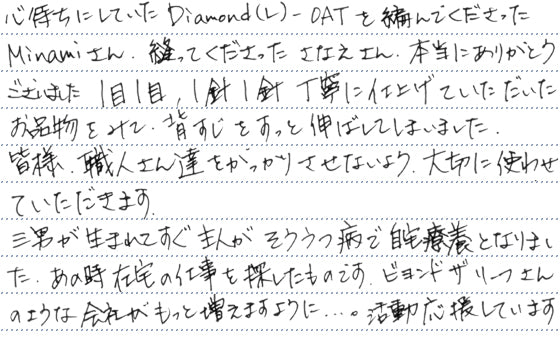 心待ちにしていたDiamond(L)-OATを編んでくださった
Minamiさん、縫ってくださったさなえさん、本当にありがとう
ございました 1目1目、1針1針 丁寧に仕上げていただいた
お品物をみて、背すじをすっと伸ばしてしまいました。
皆様、職人さん達をがっかりさせないよう、大切に使わせ
ていただきます。
三男が生まれてすぐ主人がそううつ病で自宅療養となりまし
た。あの時在宅の仕事を探したものです。ビヨンドザリーフさん
のような会社がもっと増えますように…。活動応援しています